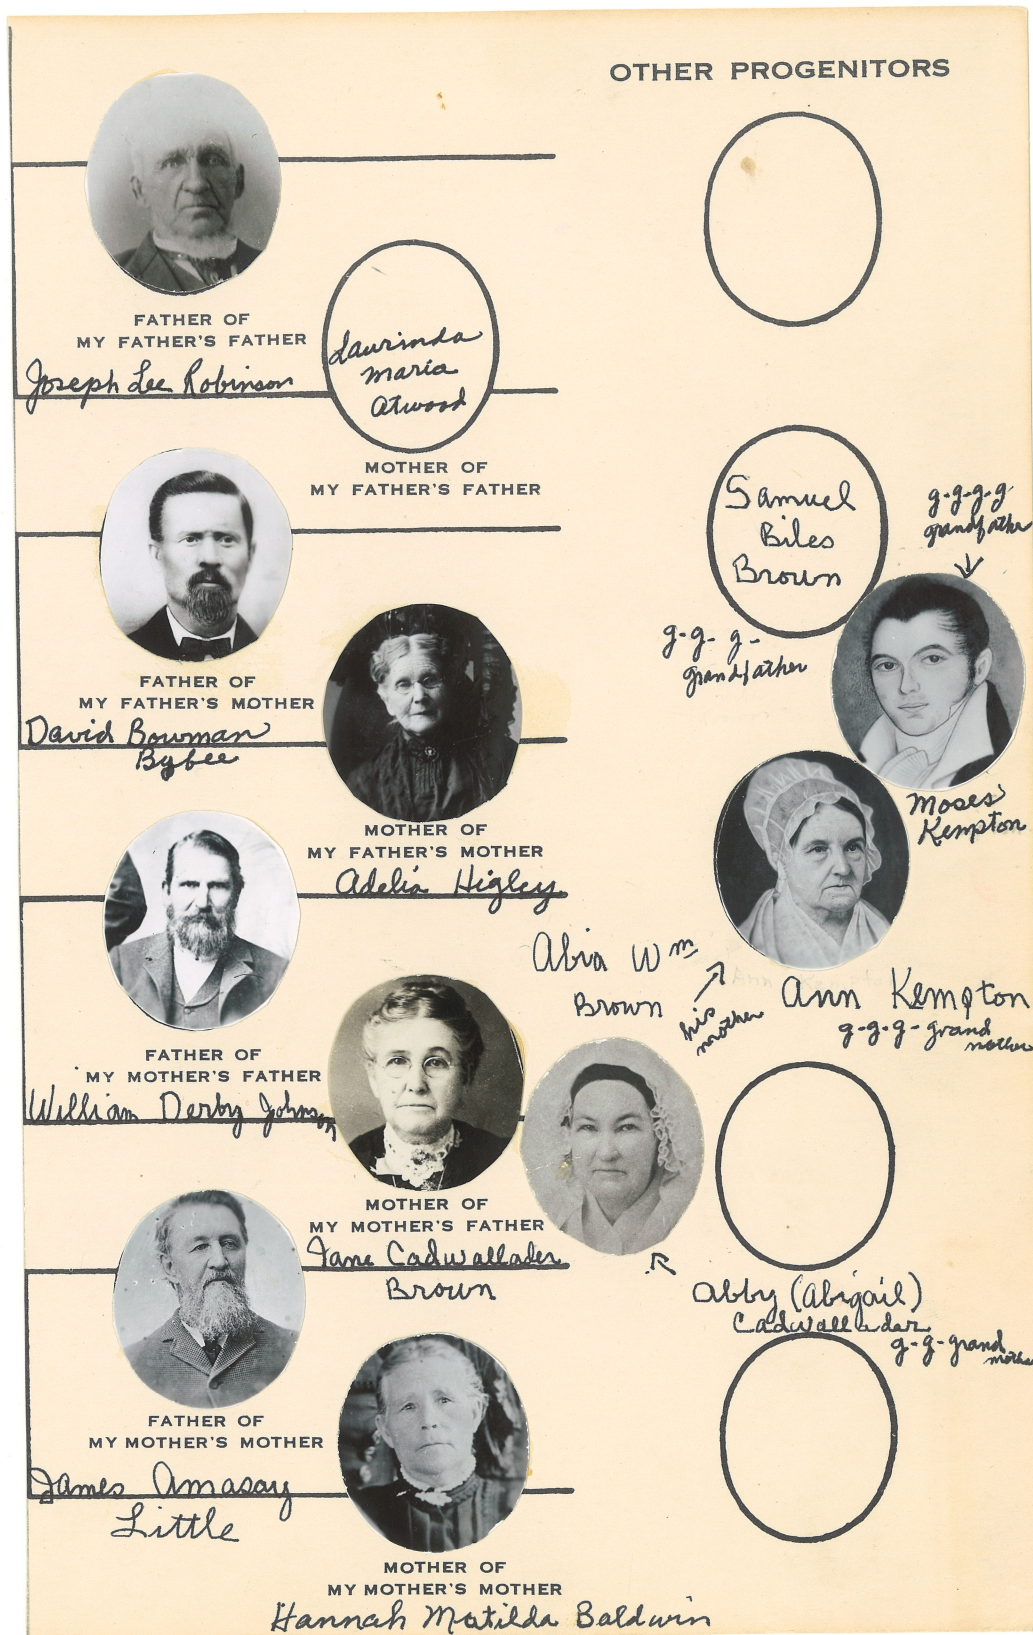 OTHER PROGENITORS
FATHER OF
MY FATHER'S FATHER
Joseph Lee Robinson
Laurinda
Maria
Atwood
MOTHER OF
MY FATHER'S FATHER
FATHER OF
MY FATHER'S MOTHER
David Bowman
Bybee
MOTHER OF
MY FATHER'S MOTHER
Adelia Higley
FATHER OF
MY MOTHER'S FATHER
William Derby Johnson
MOTHER OF
MY MOTHER'S FATHER
Jane Cadwallader
Brown
FATHER OF
MY MOTHER'S MOTHER
James Amasay
Little
MOTHER OF
MY MOTHER'S MOTHER
Hannah Matilda Baldwin
Samuel
Biles
Brown
g-g-g-
grandfather
g-g-g-g
grandfather
Moses
Kempton
Abia Wm
Brown
his
mother
Ann Kempton
Ann Kempton
g-g-g-grand
mother
Abby (Abigail)
Cadwallader
g-g-grand
mother